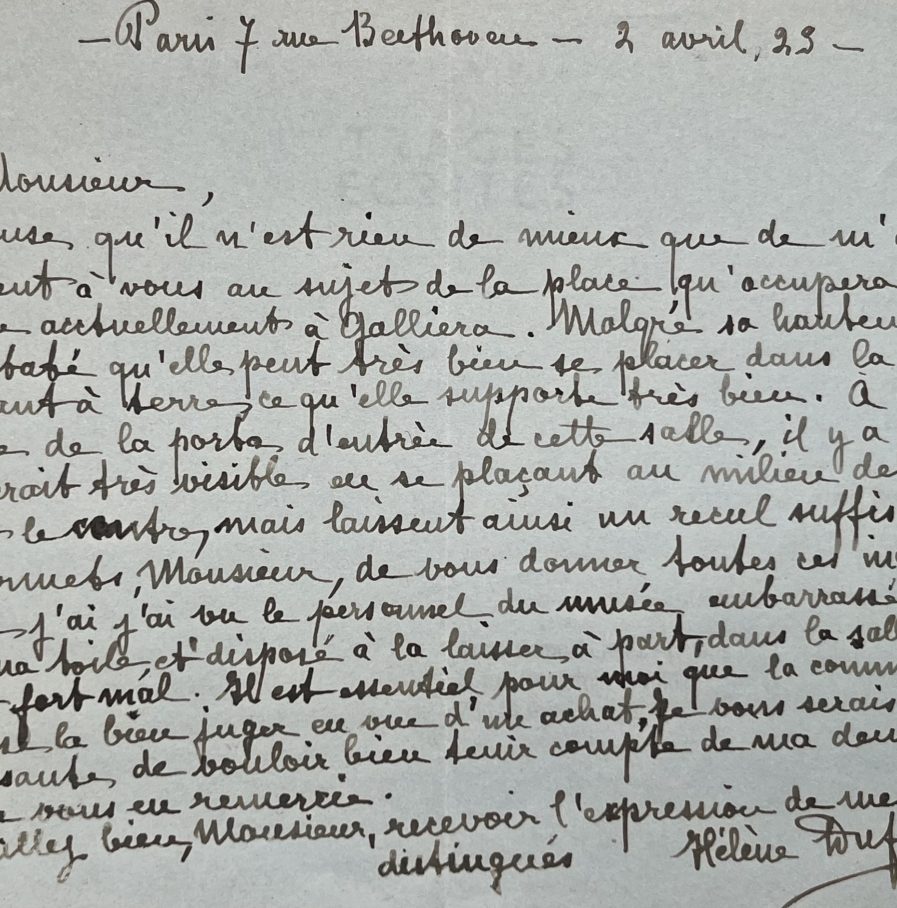 — Paris 7 rue Beethoven — 2 avril, 23 —
Monsieur,
use qu'il n'est rien de mieux que de m'
ent à vous au sujet de la place qu'occupera
e actuellement à Galliera. Malgré sa hauteu
taté qu'elle peut très bien se placer dans la
ant à terre, ce qu'elle supporte très bien. À
e de la porte d'entrée de cette salle, il y a
rait très visible en se plaçant au milieu de
s le centre, mais laissent ainsi un recul suffis
rmets, Monsieur, de vous donner toutes ces in
j'ai j'ai vu le personnel du musée embarrassé
ma toile et disposé à la laisser à part, dans la sall
fort mal. Il est essentiel pour moi que la comm
se la bien juger en vue d'un achat, je vous serais
sante de vouloir bien tenir compte de ma dem
vous en remercie.
allez bien, Monsieur, recevoir l'expression de me
distingués Hélène Duf